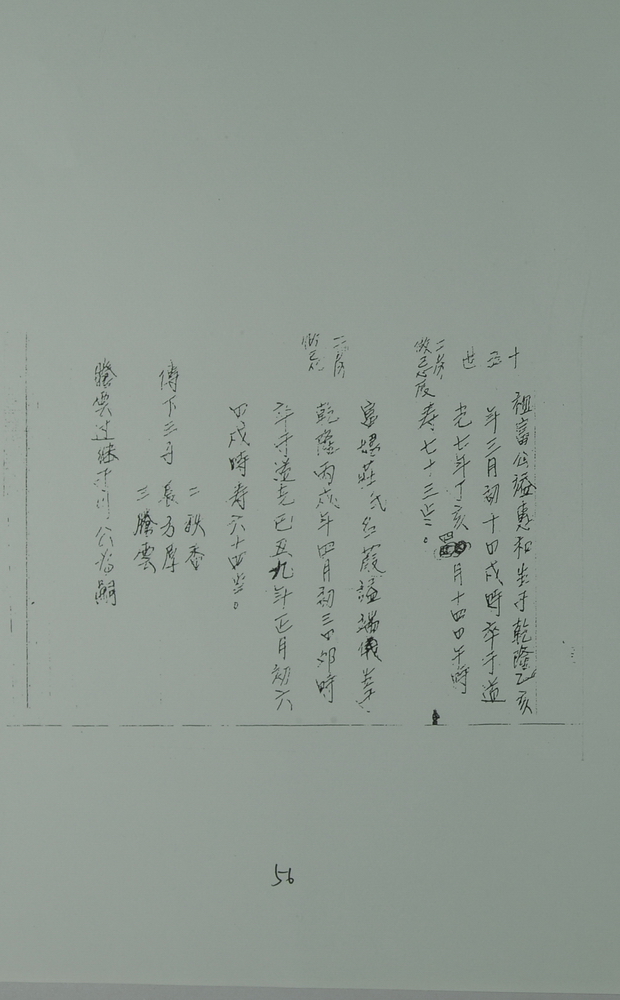 十五世
祖富公諡惠和生于乾隆乙亥
年三月初十日戌時卒于道
光七年丁亥四月十四日午時
二房做忌辰
寿七十三岁。
富媽莊氏名葭諡端儀生
二房做忌
乾隆丙戌年四月初三日卯時
卒于道光己丑九年正月初六
日戌時寿六十四岁。
二秋香
傳下三子 長方厚
三騰雲
騰雲过継于川公為嗣
56